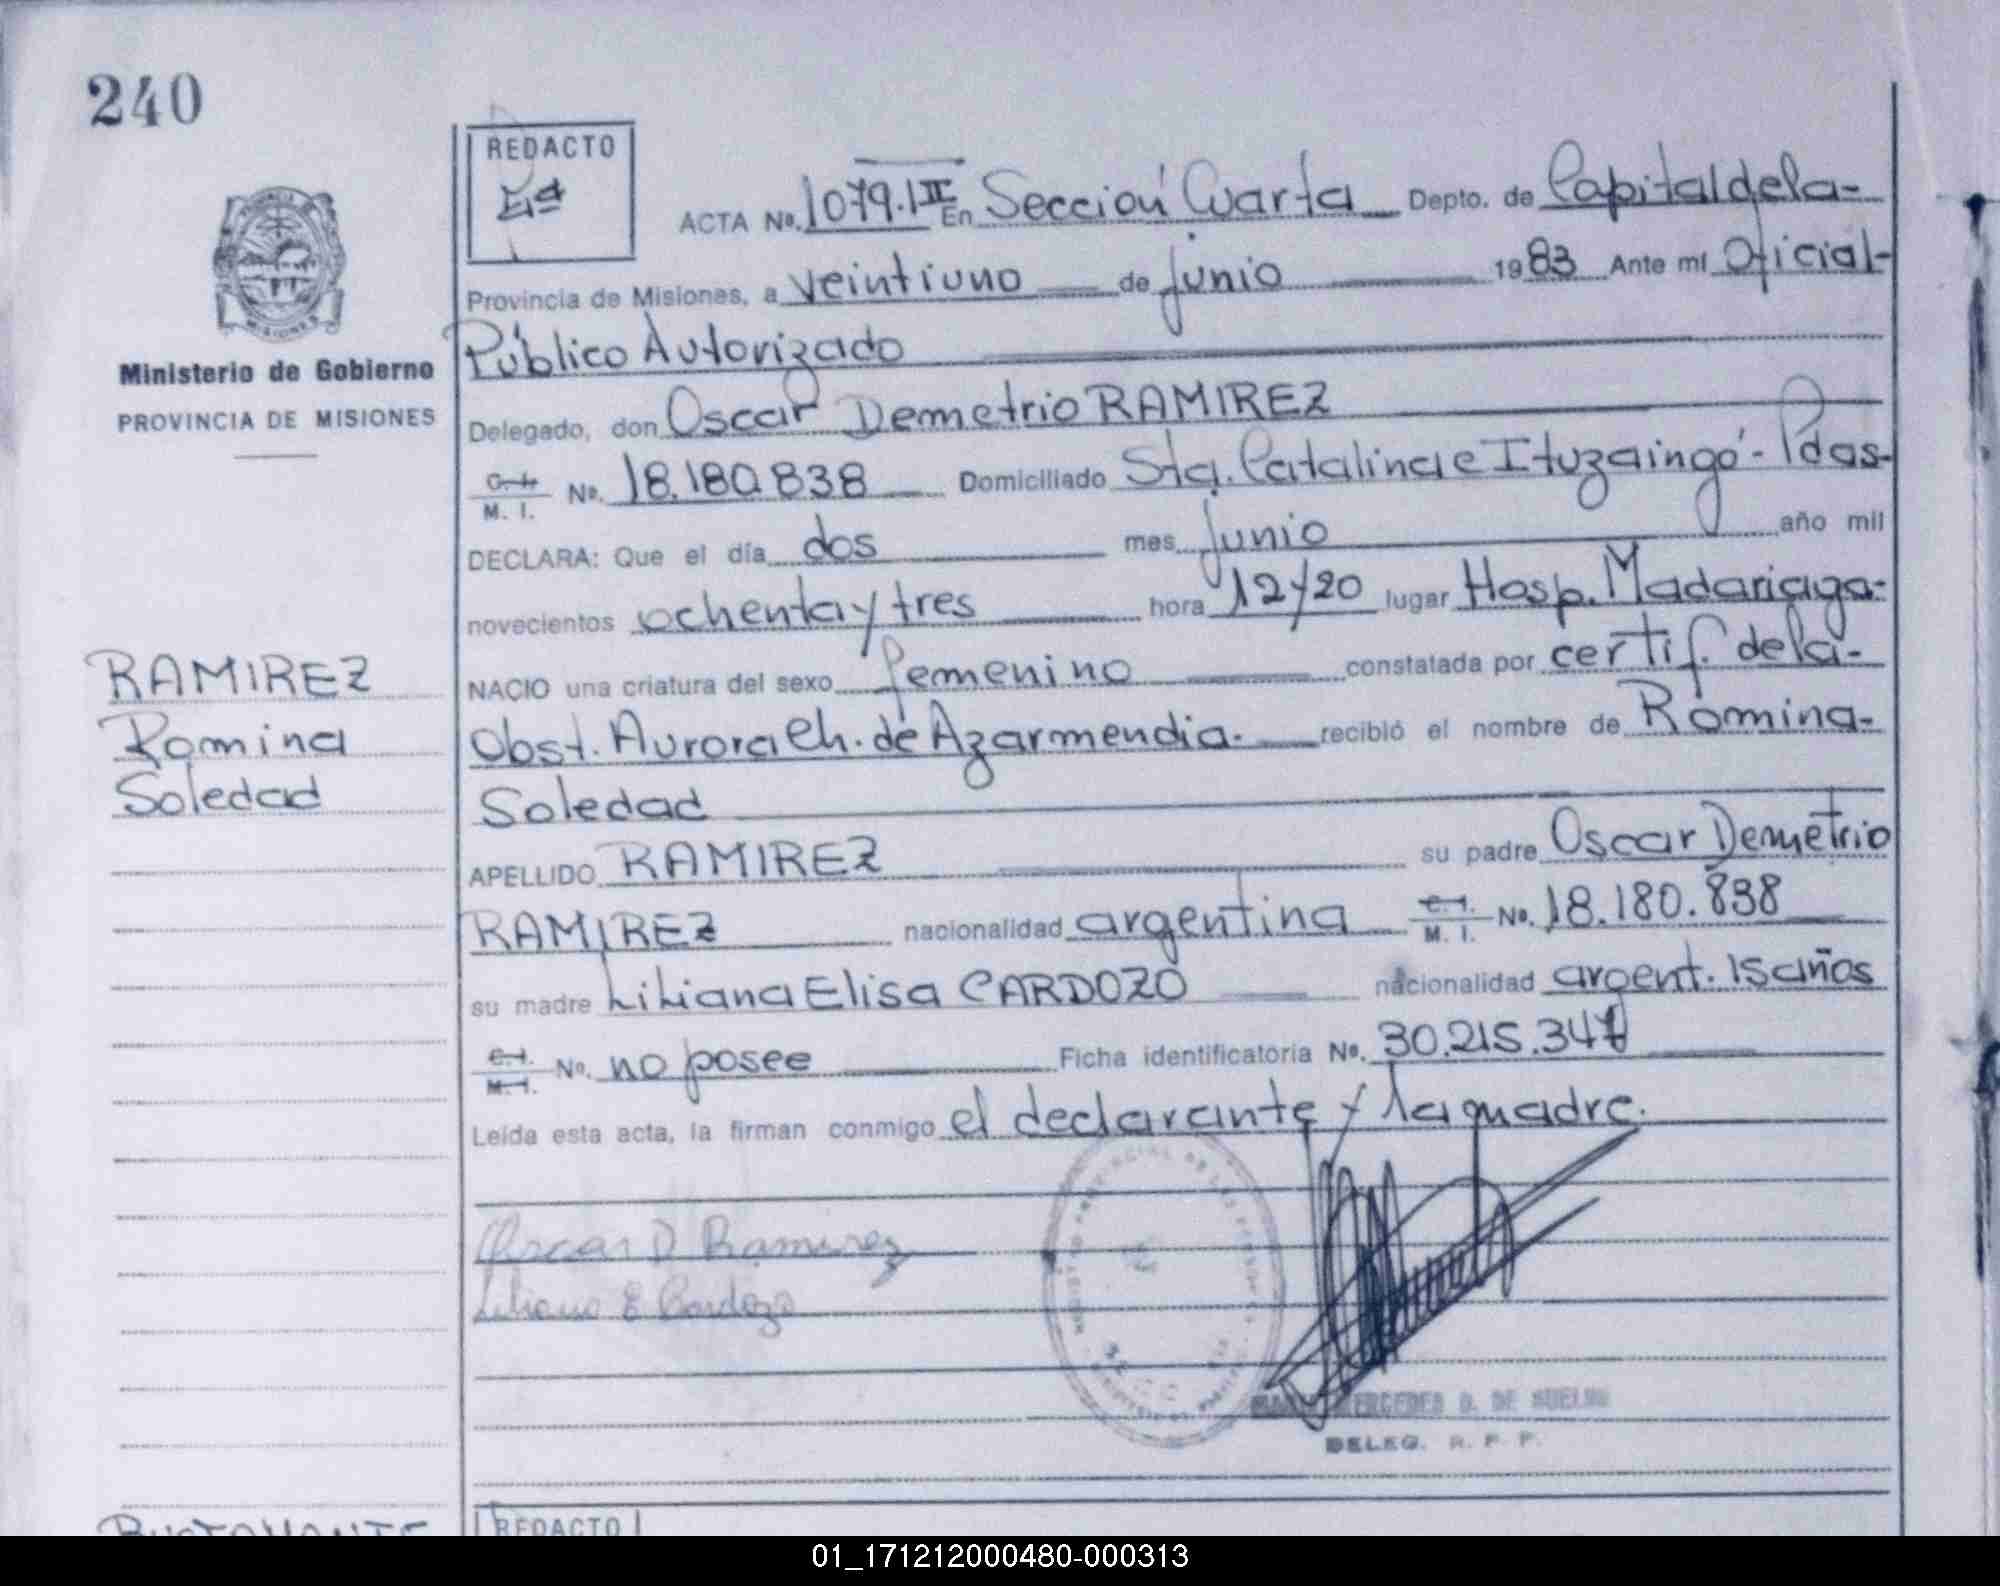 240
REDACTO
ACTA Nº. 1079.III En Sección Cuarta Depto. de Capital de la-
Provincia de Misiones, a veintiuno de junio 1983 Ante mí Oficial-
Público Autorizado
Ministerio de Gobierno
PROVINCIA DE MISIONES
Delegado, don Oscar Demetrio RAMIREZ
M. I. Nº. 18.180.838 Domiciliado Sta. Catalina e Ituzaingó - Pdas-
DECLARA: Que el día dos mes junio año mil
novecientos ochenta y tres hora 12y20 lugar Hosp. Madariaga-
RAMIREZ
Romina
Soledad
NACIO una criatura del sexo femenino constatada por certif. de la-
Obst. Aurora Ch. de Azarmendia. recibió el nombre de Romina-
Soledad
APELLIDO RAMIREZ su padre Oscar Demetrio
RAMIREZ nacionalidad argentina C. I. M. I. Nº. 18.180.838
su madre Liliana Elisa CARDOZO nacionalidad argent. 15 años
C. I. M. I. Nº. no posee Ficha identificatoria Nº. 30.215.347
Leída esta acta, la firman conmigo el declarante y la madre.
Oscar D Ramirez
Liliana E Cardozo
MERCEDES D. DE
DELEG. R. P. P.
REDACTO
01_171212000480-000313